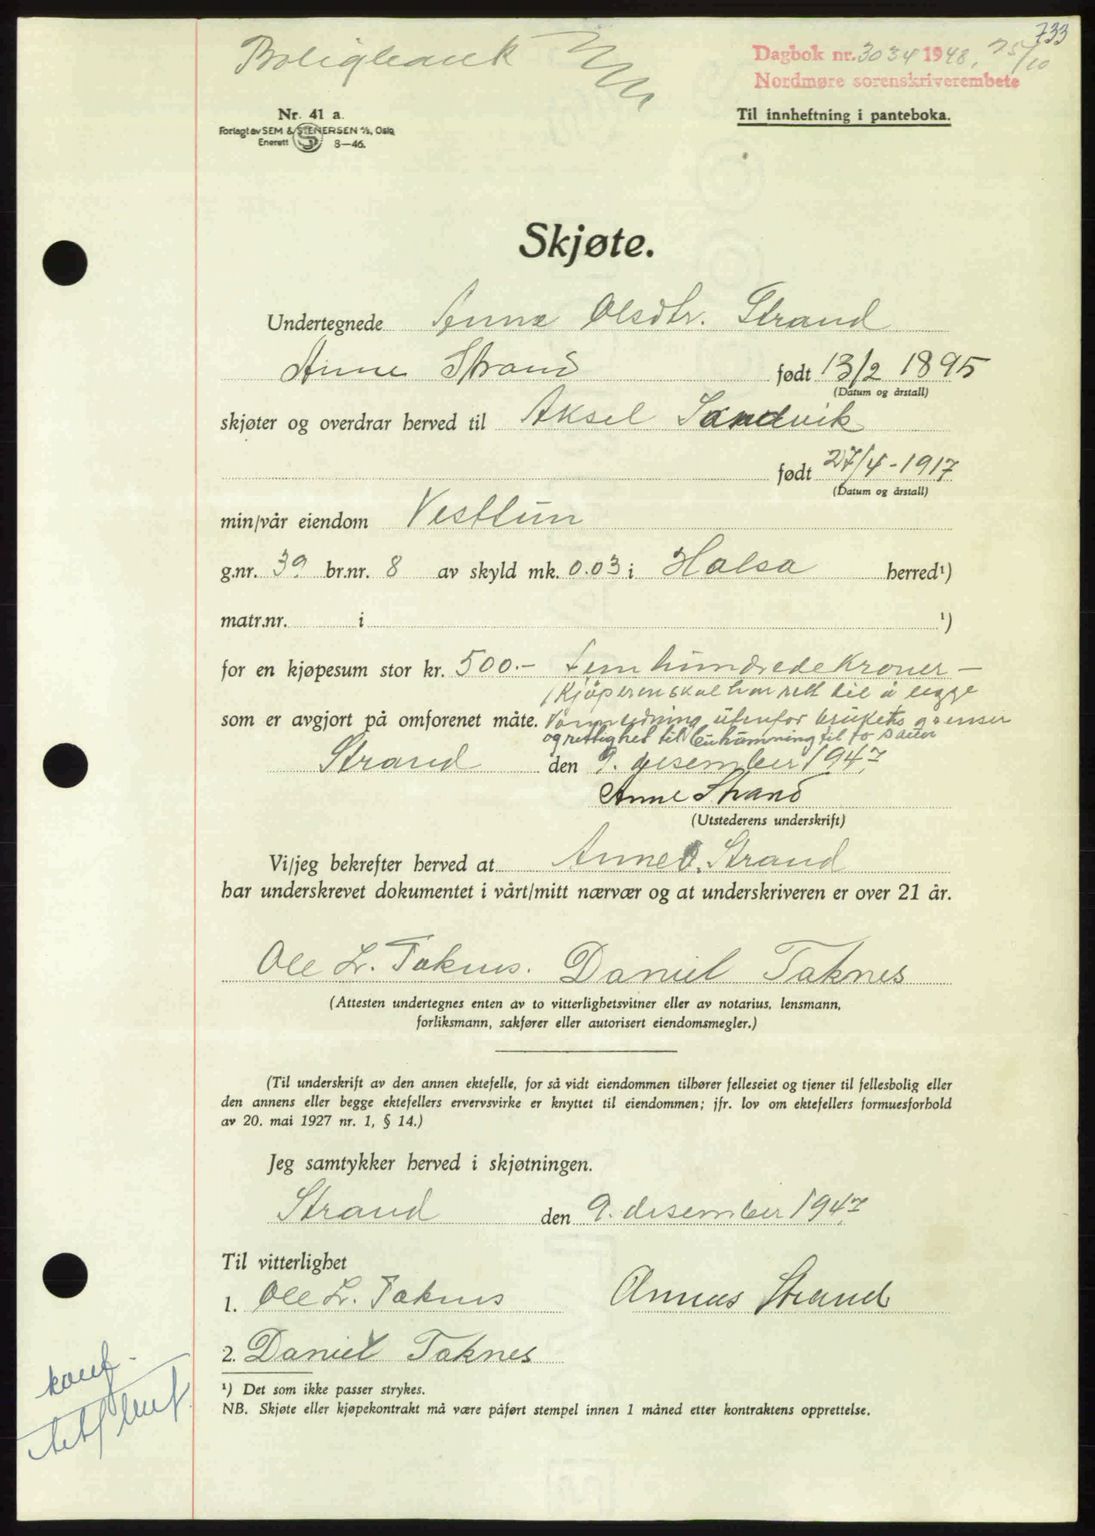 733
Boligbank
Dagbok nr. 3034 1948, 25/10
Nordmøre sorenskriverembete
Nr. 41 a.
Til innheftning i panteboka.
Forlagt av SEM & STENERSEN A/S, Oslo
Enerett 8—46.
Skjøte.
Undertegnede Anne Olsdtr. Strand
Anne Strand født 13/2 1895
(Datum og årstall)
skjøter og overdrar herved til Aksel Sandvik
født 27/4-1917
(Datum og årstall)
min/vår eiendom Vesttun
g.nr. 39 br.nr. 8 av skyld mk. 0.03 i Halsa herred¹)
matr.nr. i ¹)
for en kjøpesum stor kr. 500.- fem hundrede kroner —
Kjøperen skal har rett til å legge
som er avgjort på omforenet måte. Vannledning utenfor brukets grenser
og rettighet til til to sauer
Strand den 9. desember 1947
Anne Strand
(Utstederens underskrift)
Vi/jeg bekrefter herved at Anne O. Strand
har underskrevet dokumentet i vårt/mitt nærvær og at underskriveren er over 21 år.
Ole L. Taknes. Daniel Taknes
(Attesten undertegnes enten av to vitterlighetsvitner eller av notarius, lensmann,
forliksmann, sakfører eller autorisert eiendomsmegler.)
(Til underskrift av den annen ektefelle, for så vidt eiendommen tilhører felleseiet og tjener til fellesbolig eller
den annens eller begge ektefellers ervervsvirke er knyttet til eiendommen; jfr. lov om ektefellers formuesforhold
av 20. mai 1927 nr. 1, § 14.)
Jeg samtykker herved i skjøtningen.
Strand den 9. desember 1947
Til vitterlighet
1. Ole L. Taknes Strand
2. Daniel Taknes
konf.
¹) Det som ikke passer strykes.
NB. Skjøte eller kjøpekontrakt må være påført stempel innen 1 måned etter kontraktens opprettelse.